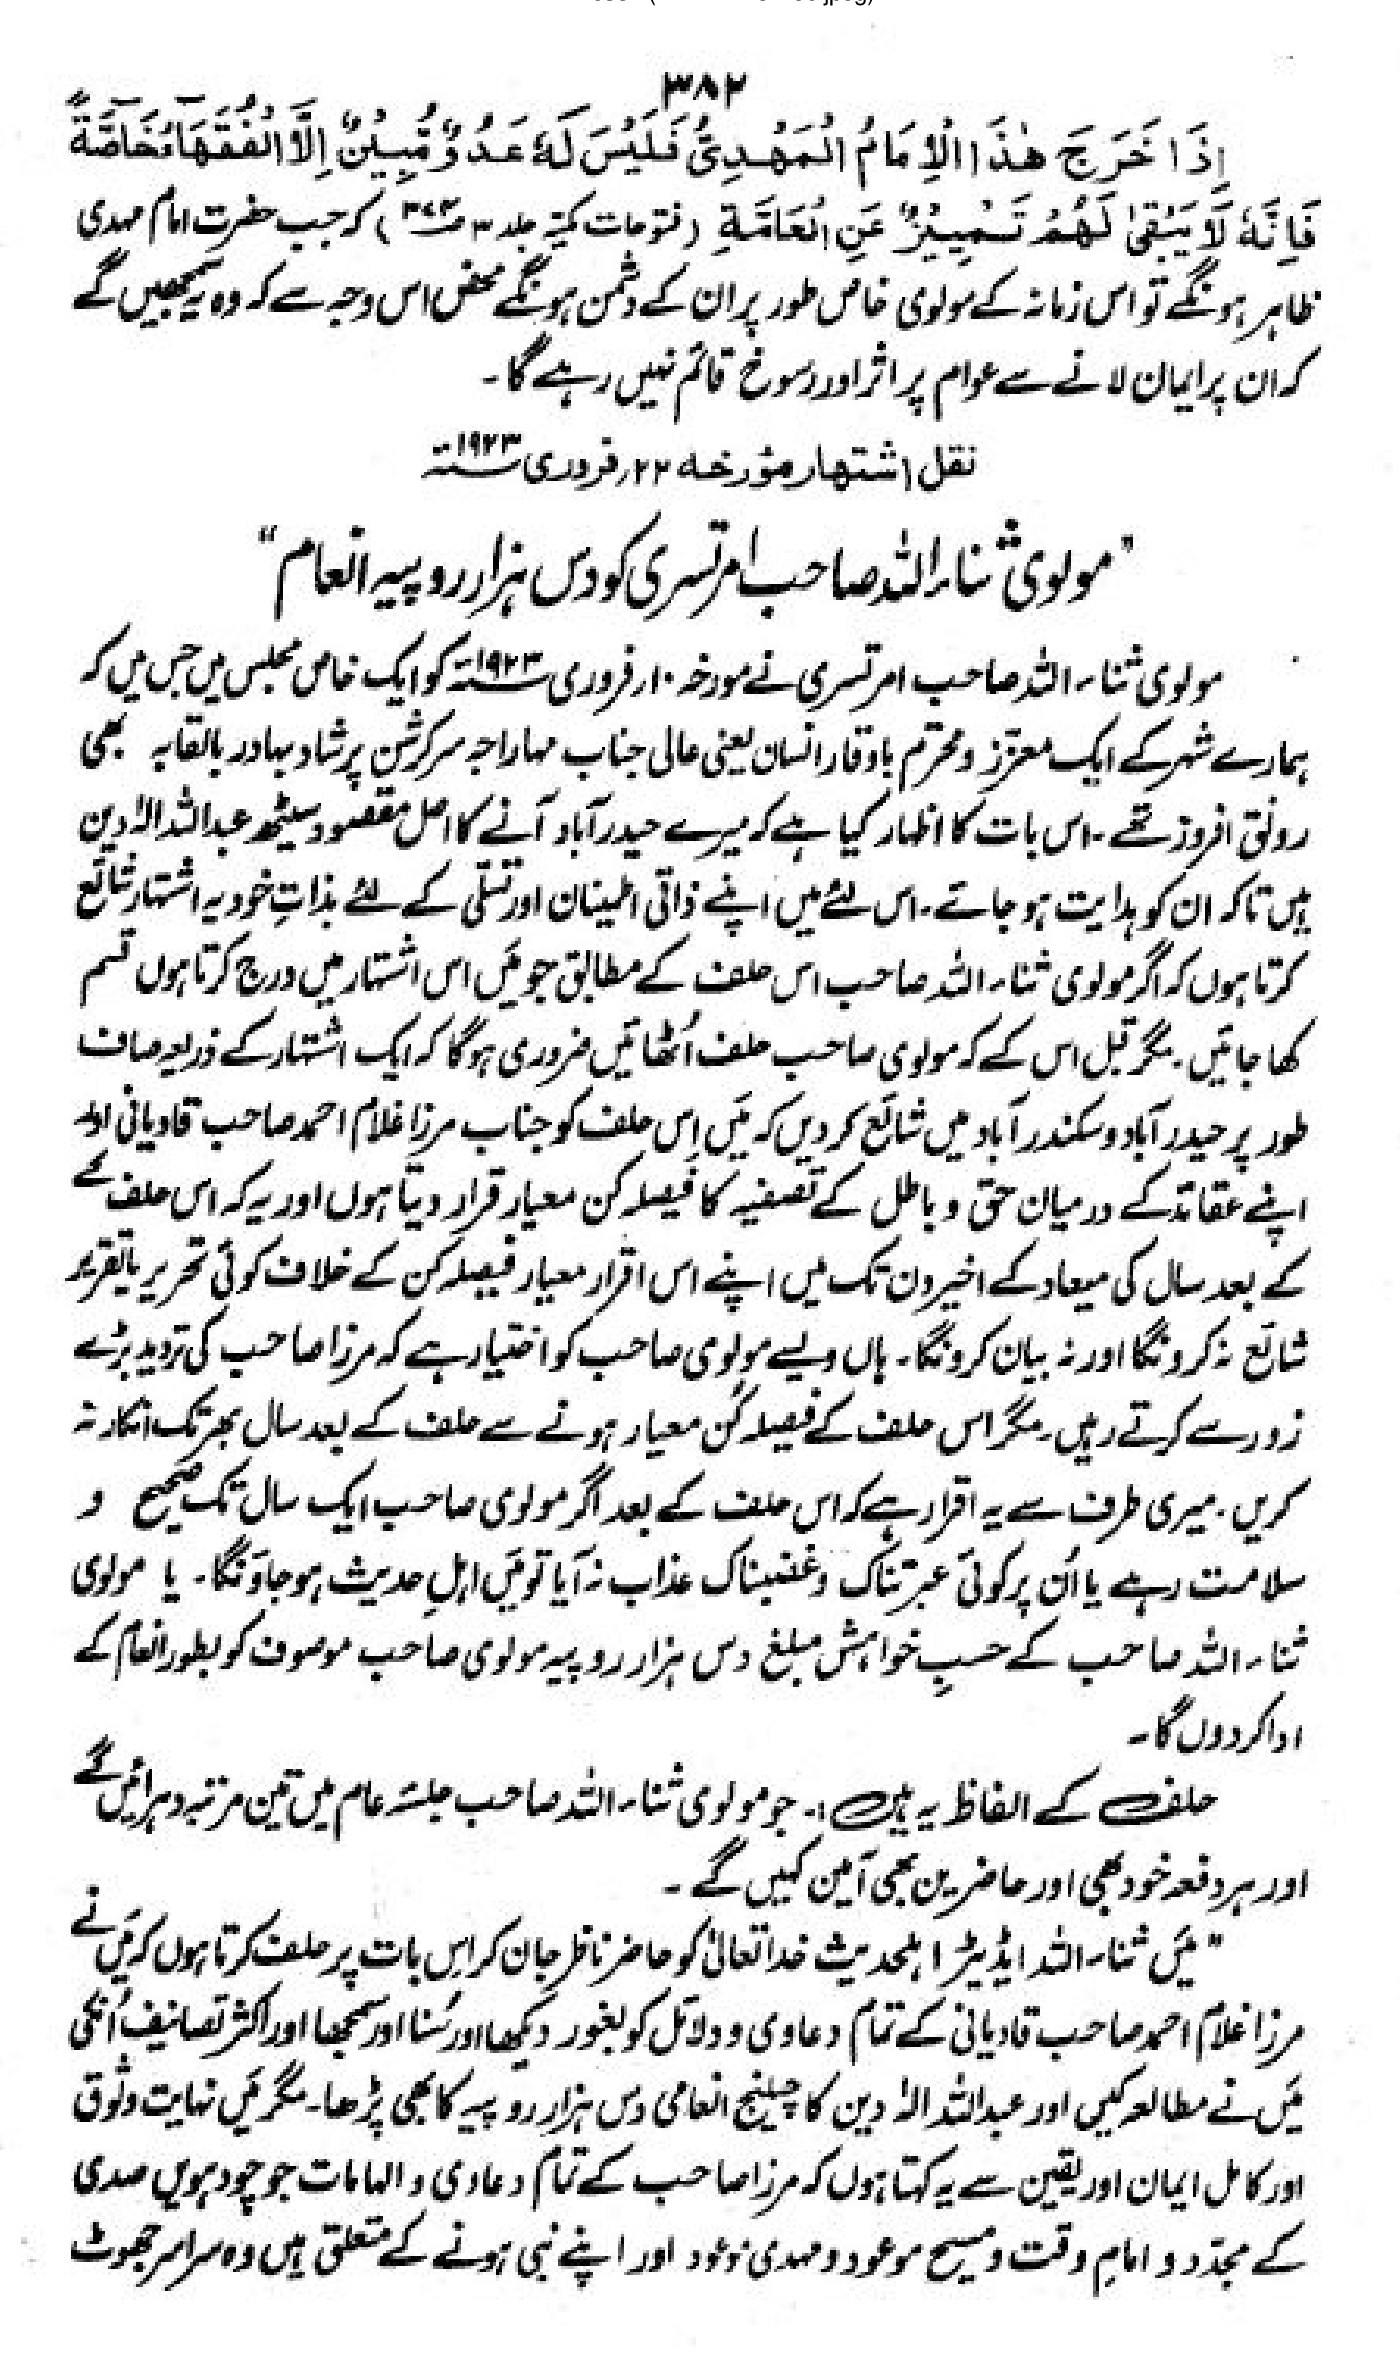 ۳۸۲
اِذَا خَرَجَ هٰذَا الْاِمَامُ الْمَهْدِيُّ فَلَيْسَ لَهٗ عَدُوٌّ مُّبِيْنٌ اِلَّا الْفُقَهَآءُ خَآصَّةً
فَاِنَّهٗ لَا يَبْقٰى لَهُمْ تَمْيِيْزٌ عَنِ الْعَامَّةِ (فتوحات مکیّہ جلد ۳ ص۳۷۴) کہ جب حضرت امام مہدی
ظاہر ہونگے تو اس زمانہ کے مولوی خاص طور پر ان کے دشمن ہونگے محض اس وجہ سے کہ وہ یہ سمجھیں گے
کہ ان پر ایمان لانے سے عوام پر اثر اور رسوخ قائم نہیں رہے گا۔
نقل اشتہار مؤرخہ ۲۲؍فروری ۱۹۲۳ء
"مولوی ثناء اللہ صاحب امرتسری کو دس ہزار روپیہ انعام"
مولوی ثناء اللہ صاحب امرتسری نے مورخہ ۱۰؍فروری ۱۹۲۳ء کو ایک خاص مجلس میں جس میں کہ
ہمارے شہر کے ایک معزّز و محترم باوقار انسان یعنی عالی جناب مہاراجہ سرکرشن پرشاد بہادر بالقابہ بھی
رونق افروز تھے۔ اس بات کا اظہار کیا ہے کہ میرے حیدرآباد آنے کا اصل مقصود سیٹھ عبداللہ الہٰ دین
ہیں تاکہ ان کو ہدایت ہو جائے۔ اس لئے میں اپنے ذاتی اطمینان اور تسلّی کے لئے بذاتِ خود یہ اشتہار شائع
کرتا ہوں کہ اگر مولوی ثناء اللہ صاحب اس حلف کے مطابق جو مَیں اس اشتہار میں درج کرتا ہوں قسم
کھا جائیں۔ مگر قبل اس کے کہ مولوی صاحب حلف اُٹھائیں ضروری ہوگا کہ ایک اشتہار کے ذریعہ صاف
طور پر حیدرآباد و سکندرآباد میں شائع کر دیں کہ مَیں اِس حلف کو جناب مرزا غلام احمد صاحب قادیانی اور
اپنے عقائد کے درمیان حق و باطل کے تصفیہ کا فیصلہ کن معیار قرار دیتا ہوں اور یہ کہ اس حلف کے
کے بعد سال کی میعاد کے اخیر دن تک میں اپنے اس اقرار معیار فیصلہ کن کے خلاف کوئی تحریر یا تقریر
شائع نہ کرونگا اور نہ بیان کرونگا۔ ہاں ویسے مولوی صاحب کو اختیار ہے کہ مرزا صاحب کی تردید بڑے
زور سے کرتے رہیں۔ مگر اس حلف کے فیصلہ کُن معیار ہونے سے حلف کے بعد سال بھر تک انکار نہ
کریں۔ میری طرف سے یہ اقرار ہے کہ اس حلف کے بعد اگر مولوی صاحب ایک سال تک صحیح و
سلامت رہے یا اُن پر کوئی عبرتناک و غضبناک عذاب نہ آیا تو مَیں اہلِ حدیث ہو جاؤنگا۔ یا مولوی
ثناء اللہ صاحب کے حسبِ خواہش مبلغ دس ہزار روپیہ مولوی صاحب موصوف کو بطور انعام کے
ادا کر دوں گا۔
حلف کے الفاظ یہ ہیں:۔ جو مولوی ثناء اللہ صاحب جلسہ عام میں تین مرتبہ دہرائیں گے
اور ہر دفعہ خود بھی اور حاضرین بھی آمین کہیں گے۔
"مَیں ثناء اللہ ایڈیٹر اہلحدیث خدا تعالیٰ کو حاضر ناظر جان کر اس بات پر حلف کرتا ہوں کہ مَیں نے
مرزا غلام احمد صاحب قادیانی کے تمام دعاوی و دلائل کو بغور دیکھا اور سُنا اور سمجھا اور اکثر تصانیف اُنکی
مَیں نے مطالعہ کیں اور عبداللہ الہٰ دین کا چیلنج انعامی دس ہزار روپیہ کا بھی پڑھا۔ مگر مَیں نہایت وثوق
اور کامل ایمان اور یقین سے یہ کہتا ہوں کہ مرزا صاحب کے تمام دعاوی و الہامات جو چودہویں صدی
کے مجدّد و امامِ وقت و مسیح موعود و مہدی موعود اور اپنے نبی ہونے کے متعلق ہیں وہ سراسر جھوٹ